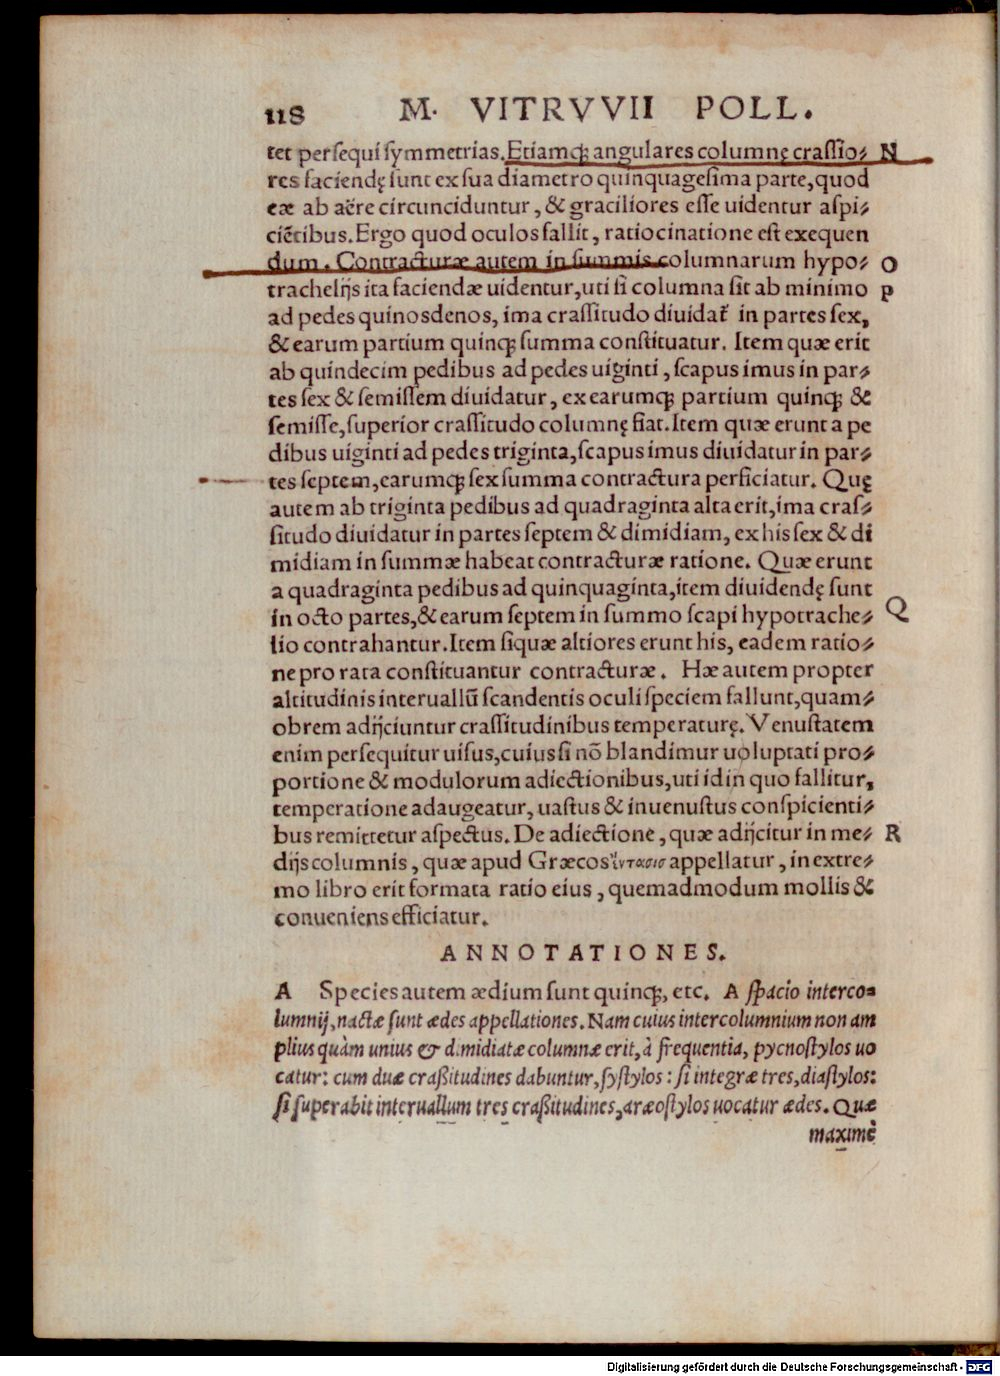 118 M. VITRVVII POLL.
tet persequi symmetrias. Etiamq́; angulares columnę crassio⸗ N
res faciendę sunt ex sua diametro quinquagesima parte, quod
eæ ab aëre circunciduntur, & graciliores esse uidentur aspi⸗
ciẽtibus. Ergo quod oculos fallit, ratiocinatione est exequen
dum. Contracturæ autem in summis columnarum hypo⸗ O
trachelijs ita faciendæ uidentur, uti si columna sit ab minimo P
ad pedes quinosdenos, ima crassitudo diuidat᷑ in partes sex,
& earum partium quinq; summa constituatur. Item quæ erit
ab quindecim pedibus ad pedes uiginti, scapus imus in par⸗
tes sex & semissem diuidatur, ex earumq; partium quinq; &
semisse, superior crassitudo columnę fiat. Item quæ erunt a pe
dibus uiginti ad pedes triginta, scapus imus diuidatur in par⸗
tes septem, earumq; sex summa contractura perficiatur. Quę
autem ab triginta pedibus ad quadraginta alta erit, ima cras⸗
situdo diuidatur in partes septem & dimidiam, ex his sex & di
midiam in summæ habeat contracturæ ratione. Quæ erunt
a quadraginta pedibus ad quinquaginta, item diuidendę sunt
in octo partes, & earum septem in summo scapi hypotrache⸗ Q
lio contrahantur. Item siquæ altiores erunt his, eadem ratio⸗
ne pro rata constituantur contracturæ. Hæ autem propter
altitudinis interuallũ scandentis oculi speciem fallunt, quam⸗
obrem adijciuntur crassitudinibus temperaturę. Venustatem
enim persequitur uisus, cuius si nõ blandimur uoluptati pro⸗
portione & modulorum adiectionibus, uti id in quo fallitur,
temperatione adaugeatur, uastus & inuenustus conspicienti⸗
bus remittetur aspectus. De adiectione, quæ adijcitur in me⸗ R
dijs columnis, quæ apud Græcos ἔντασις appellatur, in extre⸗
mo libro erit formata ratio eius, quemadmodum mollis &
conueniens efficiatur.
ANNOTATIONES.
A Species autem ædium sunt quinq;, etc. A spacio interco⸗
lumnij, nactæ sunt ædes appellationes. Nam cuius intercolumnium non am
plius quàm unius & dimidiatæ columnæ erit, à frequentia, pycnostylos uo
catur: cum duæ craßitudines dabuntur, systylos: si integræ tres, diastylos:
si superabit interuallum tres craßitudines, aræostylos uocatur ædes. Quæ
maximè
Digitalisierung gefördert durch die Deutsche Forschungsgemeinschaft - DFG